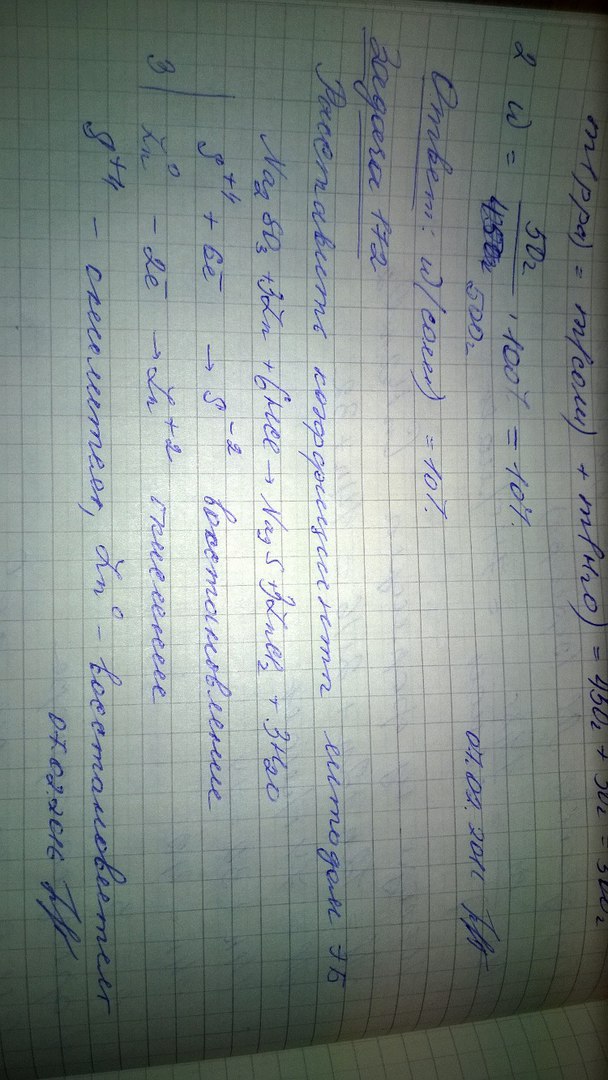 m(р-ра) = m(соли) + m(H₂O) = 450г + 50г = 500г
2 ω = 50г / 500г · 100% = 10%
Ответ: ω(соли) = 10%.
07.02.2016
Задача 172
Расставить коэффициенты методом ЭБ
Na₂SO₃ + 3Zn + 6HCl → Na₂S + 3ZnCl₂ + 3H₂O
S⁺⁴ + 6ē → S⁻² восстановление
3 | Zn⁰ - 2ē → Zn⁺² окисление
S⁺⁴ - окислитель, Zn⁰ - восстановитель
07.02.2016